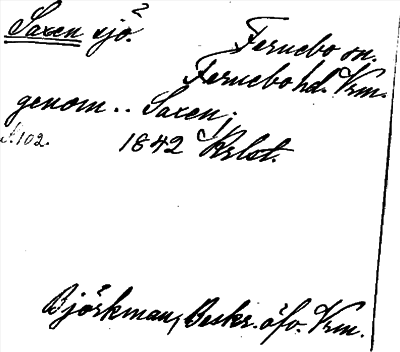 Saxen sjö. 2
Fernebo sn.
Fernebo hd. Vrm.
genom .. Saxen;
s. 102. 1842 Krlst.
Björkman, Beskr. öfv. Vrm.